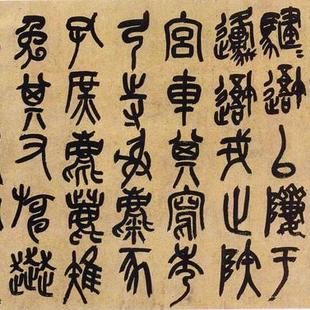 騝吾以隮于
邍吾戎止陕
宮車其寫秀
弓寺射麋豕
孔庶麀鹿雉
兔其又旆